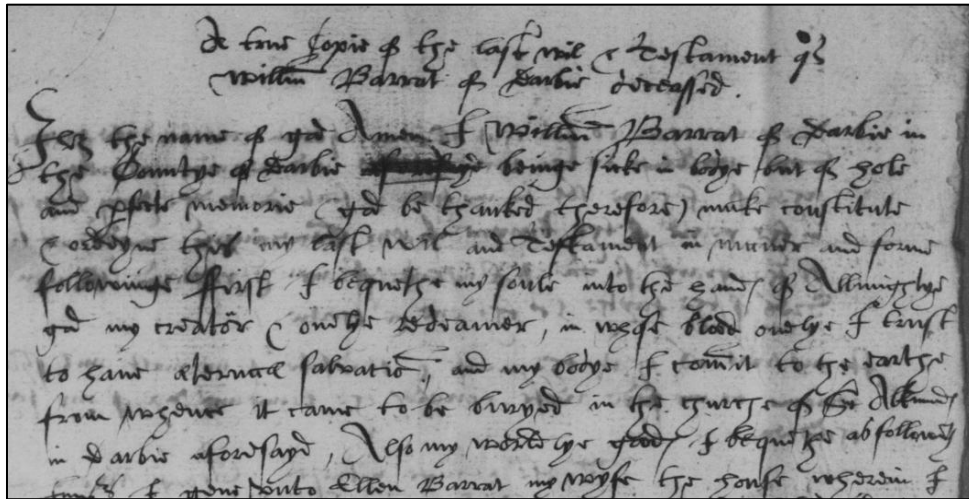 A true Copie of the last wil & Testament of
Willm Barrat of Darbie deceassed.
In the name of god Amen I Willm Barrat of Darbie in
the Countye of Darbie beinge sicke in bodye but of hole
and pfecte memorie (god be thanked therefore) make constitute
& ordeyne this my last wil and Testament in maner and forme
followinge First I bequethe my soule into the hands of Allmightye
god my creator & onelye redeamer, in whose blood onelye I trust
to have aternall salvatio, and my bodye I comit to the earthe
from whence it came to be buryed in the churche of St Alkmunds
in Darbie aforesayd, Also my worldlye goods I bequethe as followeth
I geve unto Ellen Barrat my wyfe the house wherein I